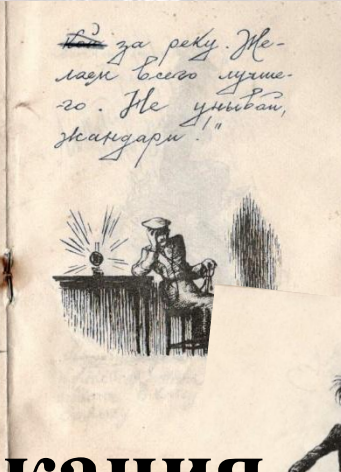 за реку. Же-
лаем всего лучше-
го. Не унывай,
жандарм!"
кация